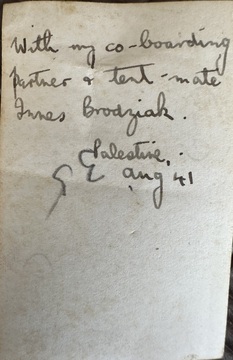 With my co-boarding
partner & tent-mate
Innes Brodziak.
Palestine,
Aug 41